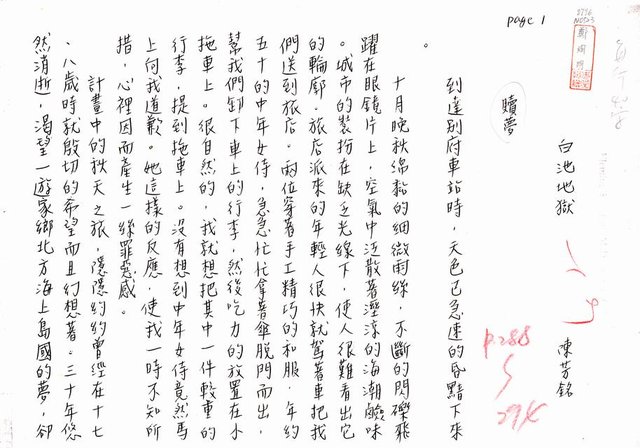 page 1
白池地獄 陳芳銘
p288
294
贖夢
到達別府車站時，天色已急速的昏黯下來
。
十月晚秋綿黏的細微雨絲，不斷的閃礫飛
躍在眼鏡片上，空氣中泛散著溼涼的海潮鹼味
。城市的裝扮在缺乏光線下，使人很難看出它
的輪廓。旅店派來的年輕人很快就駕著車把我
們送到旅店。兩位穿著手工精巧的和服，年約
五十的中年女侍，急急忙忙拿著傘脫門而出，
幫我們卸下車上的行李，然後吃力的放置在小
拖車上。很自然的，我就想把其中一件較重的
行李，提到拖車上。沒有想到中年女侍竟然馬
上向我道歉。她這樣的反應，使我一時不知所
措，心裡因而產生一絲罪惡感。
計畫中的秩天之旅，隱隱約約曾經在十七
、八歲時就殷切的希望而且幻想著。三十年悠
然消逝，渴望一遊家鄉北方海上島國的夢，卻